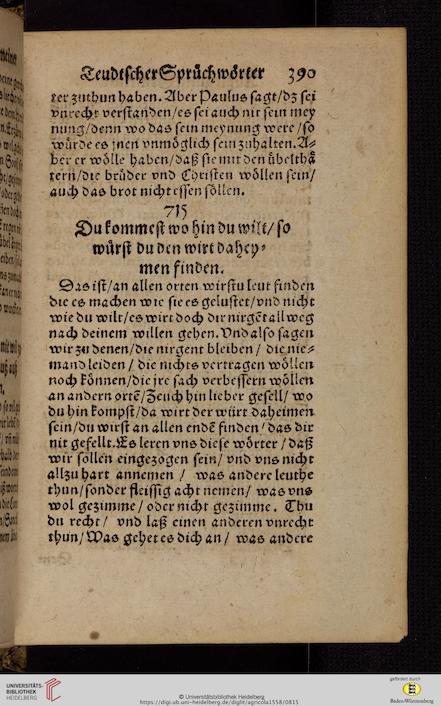 Teudtscher Sprüchwörter 390
ter zuthun haben. Aber Paulus sagt/dz sei
vnrecht verstanden/es sei auch nit sein mey
nung/denn wo das sein meynung were/so
würde es jnen vnmöglich sein zuhalten. A⸗
ber er wölle haben/daß sie mit den übelthä
tern/die brüder vnd Christen wöllen sein/
auch das brot nicht essen söllen.
715
Du kommest wo hin du wilt/so
würst du den wirt dahey⸗
men finden.
Das ist/an allen orten wirstu leut finden
die es machen wie sie es gelustet/vnd nicht
wie du wilt/es wirt doch dir nirgēt all weg
nach deinem willen gehen. Vnd also sagen
wir zu denen/die nirgent bleiben/ die nie⸗
mand leiden/ die nichts vertragen wöllen
noch können/die jre sach verbessern wöllen
an andern ortē/Zeuch hin lieber gesell/ wo
du hin kompst/da wirt der würt daheimen
sein/du wirst an allen endē finden/das dir
nit gefellt. Es leren vns diese wörter/ daß
wir sollen eingezogen sein/ vnd vns nicht
allzu hart annemen / was andere leuthe
thun/sonder fleissig acht nemen/ was vns
wol gezimme/ oder nicht gezimme. Thu
du recht/ vnd laß einen anderen vnrecht
thun/Was gehet es dich an/ was andere
UNIVERSITÄTS-
BIBLIOTHEK
HEIDELBERG
© Universitätsbibliothek Heidelberg
https://digi.ub.uni-heidelberg.de/diglit/agricola1558/0815
gefördert durch
Baden-Württemberg